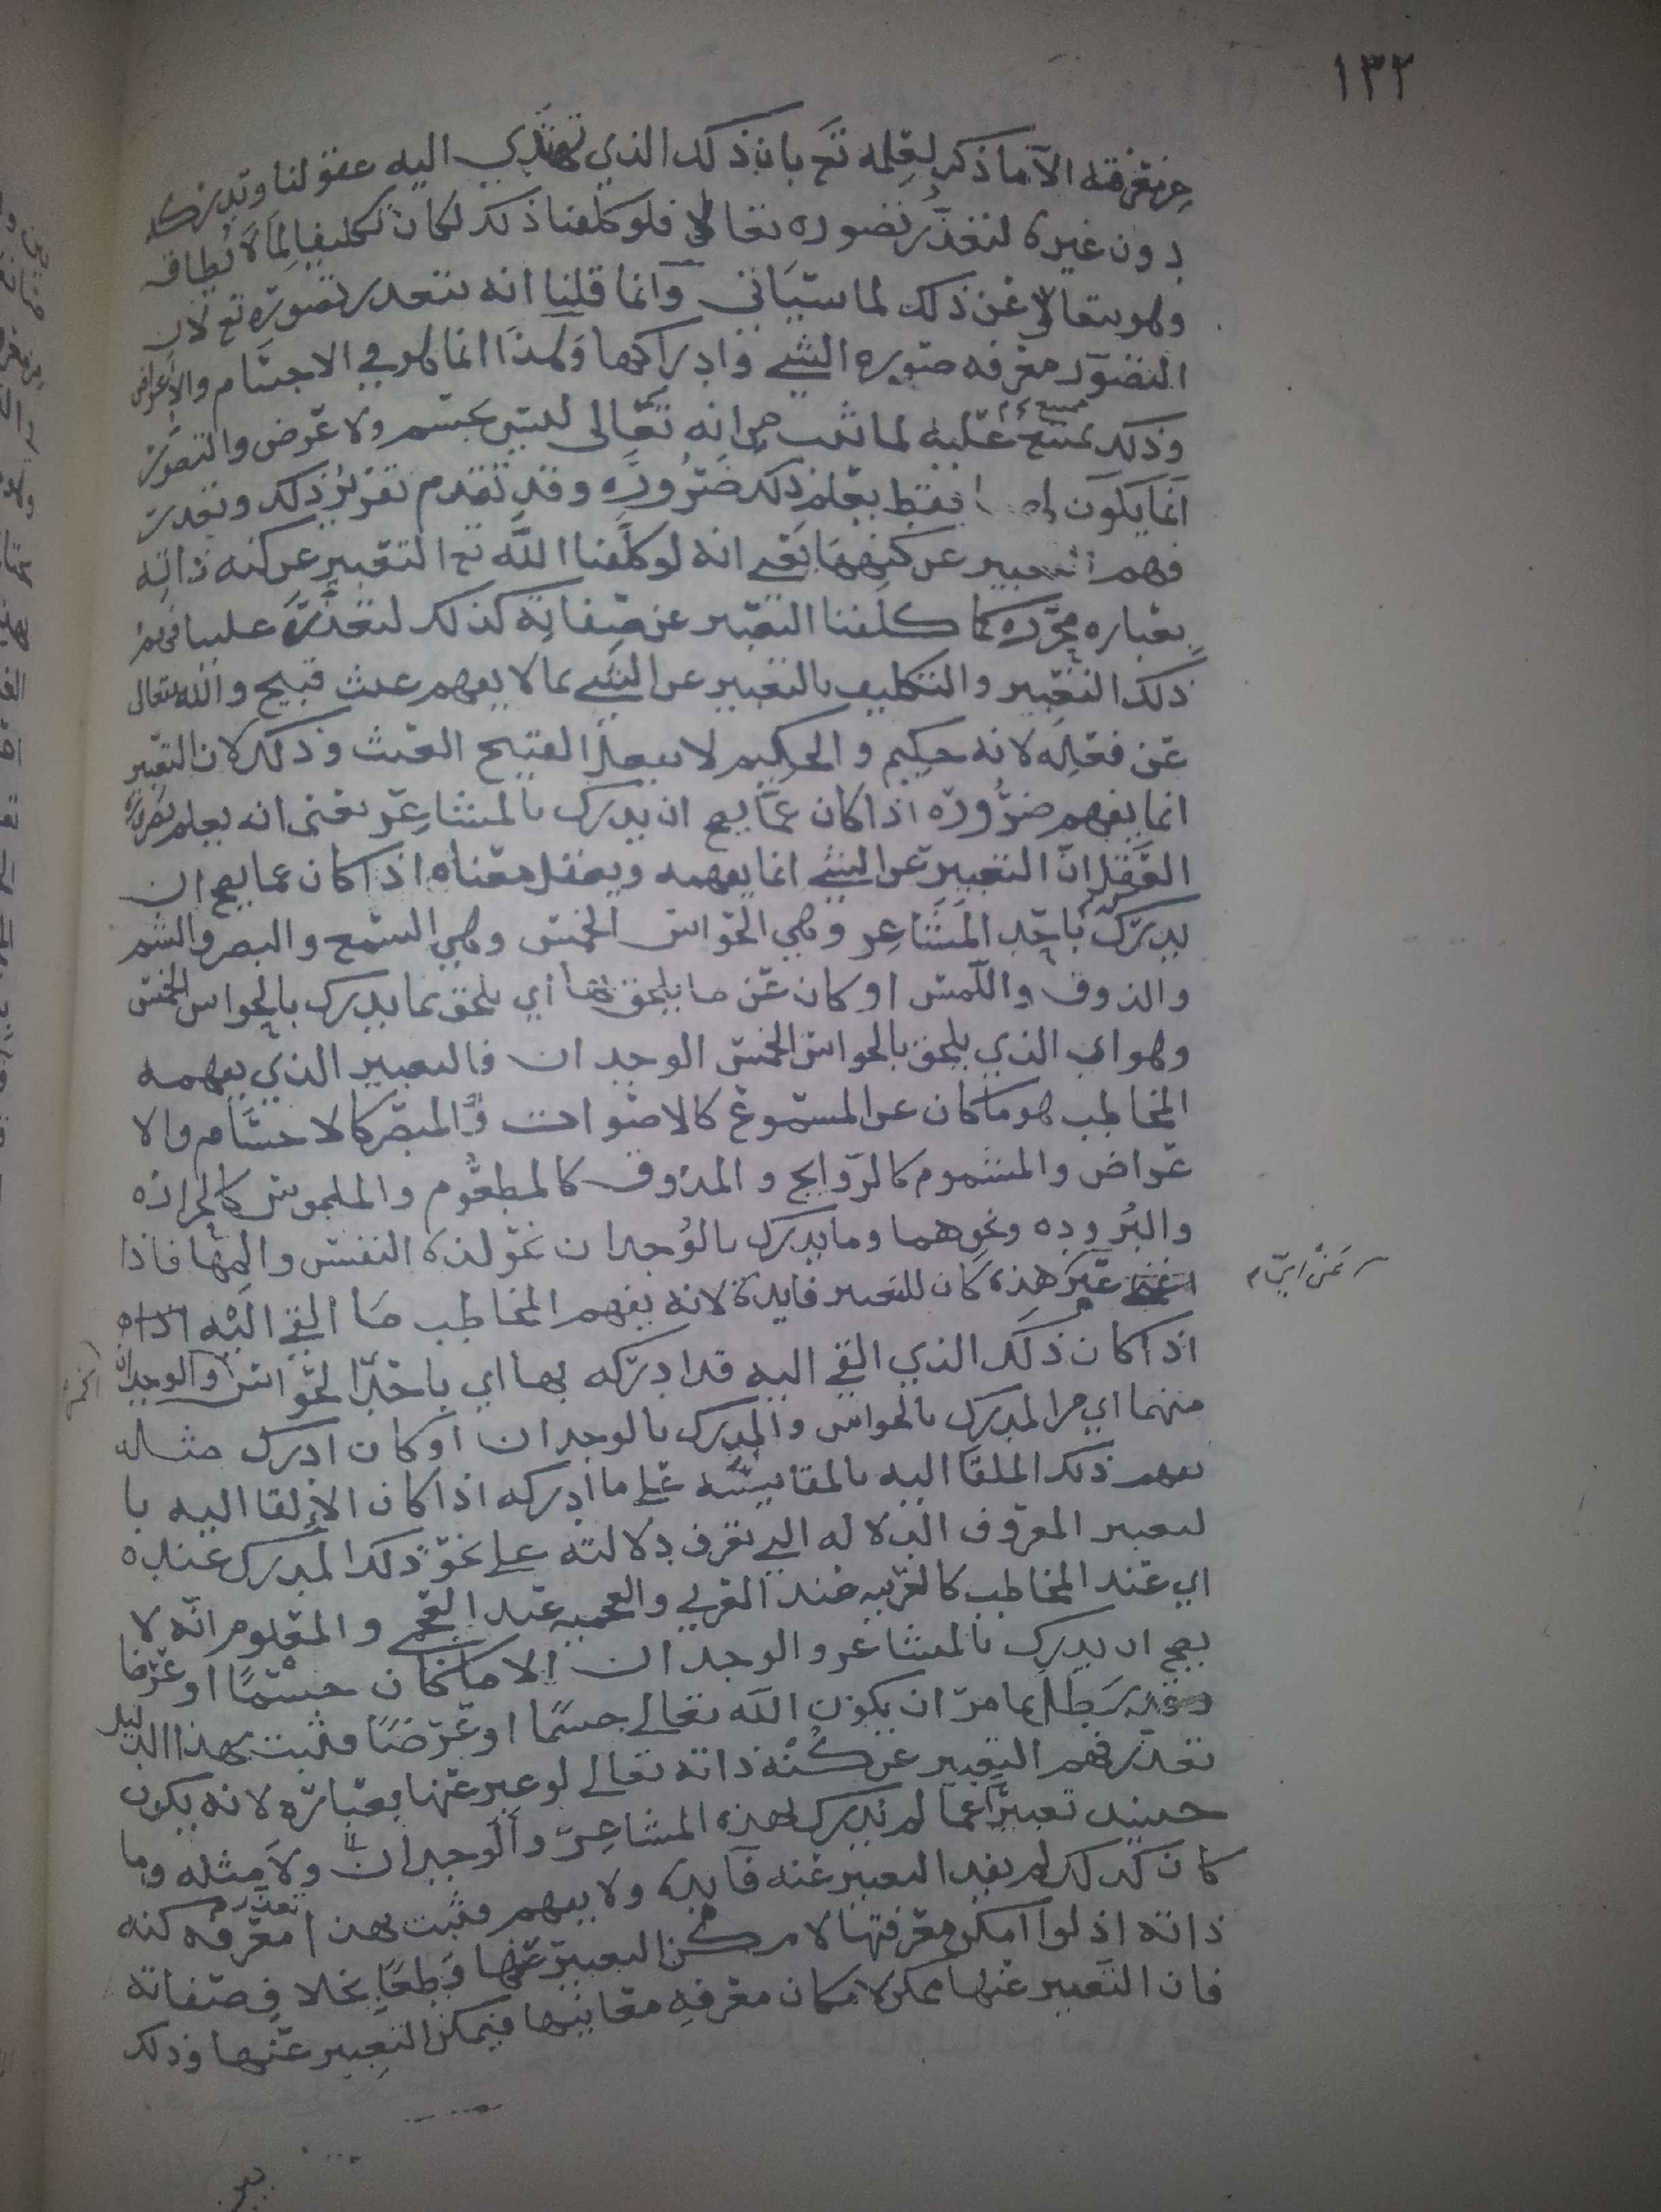 ١٣٢
من معرفته الا ما ذكر لعلمه تع بان ذلك الذي تهتدي اليه عقولنا وتدركه
دون غيره لتعذر تصوره تعالى فلو كلفنا ذلك لكان تكليفا لما لا يطاق
وهو يتعالى عن ذلك لما سياتي وانما قلنا انه يتعذر تصوره تع لان
التصور معرفه صوره الشي وادراكها وهذا انما هو في الاجسام والاعراض
وذلك ممتنع عليه لما ثبت من انه تعالى ليس بجسم ولا عرض والتصور
انما يكون لهما فقط يعلم ذلك ضروره وقد تقدم تقرير ذلك وتعذر
فهم التعبير عن كنهها يعني انه لو كلفنا الله تع التعبير عن كنه ذاته
بعباره مجرده كما كلفنا التعبير عن صفاته كذلك لتعذر علينا فهم
ذلك التعبير والتكليف بالتعبير عن الشي بما لا يفهم عبث قبيح والله يتعالى
عن فعله لانه حكيم والحكيم لا يفعل القبيح العبث وذلك لان التعبير
انما يفهم ضروره اذا كان عما يصح ان يدرك بالمشاعر يعني انه يعلم بضرورة
العقل ان التعبير عن الشي انما يفهمه ويعقل معناه اذا كان عما يصح ان
يدرك باحد المشاعر وهي الحواس الخمس وهي السمع والبصر والشم
والذوق واللمس او كان عن ما يلحق بها اي يلحق بما يدرك بالحواس الخمس
وهو اي الذي يلحق بالحواس الخمس الوجدان فالتعبير الذي يفهمه
المخاطب هو ما كان عن المسموع كالاصوات والمبصر كالاجسام والا
عراض والمشموم كالروايح والمذوق كالمطعوم والملموس كالحراره
والبروده ونحوهما وما يدرك بالوجدان نحو لذة النفس والمها فاذا
عبر عن اي
هذه كان للتعبير فايدة لانه يفهم المخاطب ما القي اليه
اذا كان ذلك الذي القي اليه قد ادركه بها اي باحد الحواس والوجدان
الخمس
منهما اي من المدرك بالحواس والمدرك بالوجدان او كان ادرك مثله
يفهم ذلك الملقا اليه بالمقايسه على ما ادركه اذا كان الالقا اليه با
لتعبير المعروف الدلاله التي تعرف دلالته على نحو ذلك المدرك عنده
اي عند المخاطب كالعربيه عند العربي والعجميه عند العجمي والمعلوم انه لا
يصح ان يدرك بالمشاعر والوجدان الا ما كان جسما او عرضا
وقد بطل بما مر ان يكون الله تعالى جسما او عرضا فثبت بهذا الدليل
تعذر فهم التعبير عن كنه ذاته تعالى لو عبر عنها بعباره لانه يكون
حينيذ تعبيرا عما لم يدرك بهذه المشاعر والوجدان ولا مثله وما
كان كذلك لم يفد التعبير عنه فايده ولا يفهم فثبت بهذا تعذر معرفه كنه
ذاته اذ لو امكن معرفتها لامكن التعبير عنها قطعا بخلاف صفاته
فان التعبير عنها ممكن لامكان معرفه معانيها فيمكن التعبير عنها وذلك